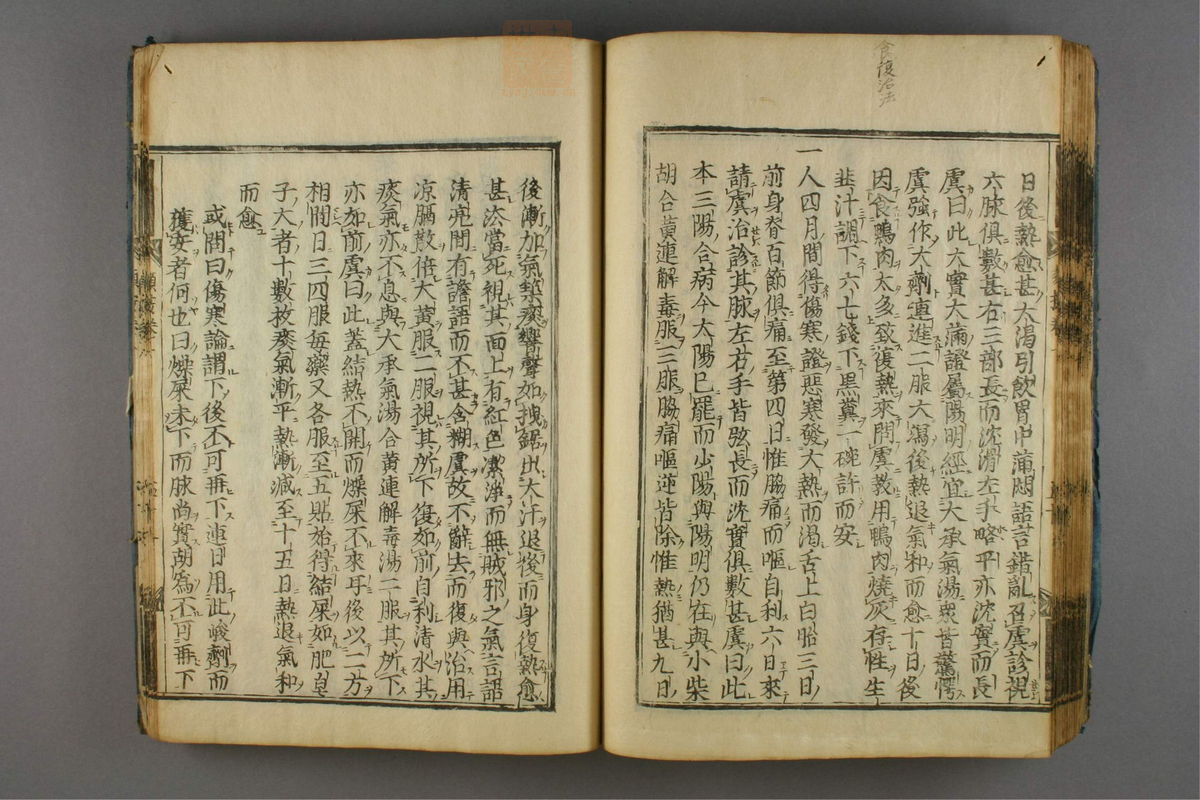 食復治法
日後熱愈甚大渴引飲胃中滿悶語言錯亂召虞診視
六脉俱數甚右三部長而沈滑左手略平亦沈實而長
虞曰此大實大滿證屬陽明經宜大承氣湯衆皆驚愕
虞強作大劑連進二服大瀉後熱退氣和而愈十日後
因食鴨肉太多致復熱來問虞教用鴨肉燒灰存性生
韭汁調下六七錢下黑糞一碗許而安
一人四月間得傷寒證惡寒發大熱而渴舌上白胎三日
前身脊百節俱痛至第四日惟脇痛而嘔自利六日來
請虞治診其脉左右手皆弦長而沈實俱數甚虞曰此
本三陽合病今太陽已罷而少陽與陽明仍在與小柴
胡合黃連解毒服三服脇痛嘔逆皆除惟熱猶甚九日
後漸加氣築痰響聲如拽鋸出大汗退後而身復熱愈
甚法當死視其面上有紅色潔淨而無賊邪之氣言語
清亮間有譫語而不甚含糊虞故不辭去而復與治用
凉膈散倍大黃服二服視其所下復如前自利清水其
痰氣亦不息與大承氣湯合黃連解毒湯二服其所下
亦如前虞曰此蓋結熱不開而燥屎不來耳後以二方
相間日三四服每藥又各服至五貼始得結屎如肥皂
子大者十數枚痰氣漸平熱漸減至十五日熱退氣和
而愈
或問曰傷寒論謂下後不可再下連日用此峻劑而
獲安者何也曰燥屎未下而脉尚實胡爲不可再下